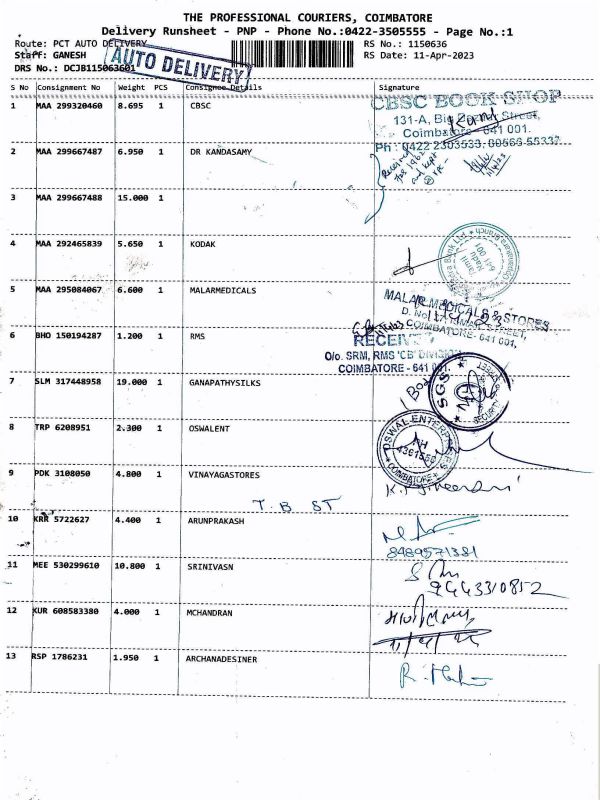 THE PROFESSIONAL COURIERS, COIMBATORE
Delivery Runsheet - PNP - Phone No.:0422-3505555 - Page No.:1
Route: PCT AUTO DELIVERY RS No.: 1150636
Staff: GANESH RS Date: 11-Apr-2023
DRS No.: DCJB115063601
AUTO DELIVERY
S No Consignment No Weight PCS Consignee Details Signature
1 MAA 299320460 8.695 1 CBSC
CBSC BOOK SHOP
131-A, Big Street,
Coimbatore - 641 001.
Ph : 0422 2303533,
2 MAA 299667487 6.950 1 DR KANDASAMY
Received
and kept
3 MAA 299667488 15.000 1
4 MAA 292465839 5.650 1 KODAK
5 MAA 295084067 6.600 1 MALARMEDICALS
MALAR MEDICALS & STORES
D. No. STREET,
COIMBATORE- 641 001.
6 BHO 150194287 1.200 1 RMS
RECEIVED
O/o. SRM, RMS 'CB' DIVISION
COIMBATORE - 641 001.
7 SLM 317448958 19.000 1 GANAPATHYSILKS
SGS
SECURITY
8 TRP 6208951 2.300 1 OSWALENT
OSWAL ENTERPRISES
PH
4361556
COIMBATORE
9 PDK 3108050 4.800 1 VINAYAGASTORES
T.B ST
10 KRR 5722627 4.400 1 ARUNPRAKASH
8489571381
11 MEE 530299610 10.800 1 SRINIVASN
9443310852
12 KUR 608583380 4.000 1 MCHANDRAN
13 RSP 1786231 1.950 1 ARCHANADESINER